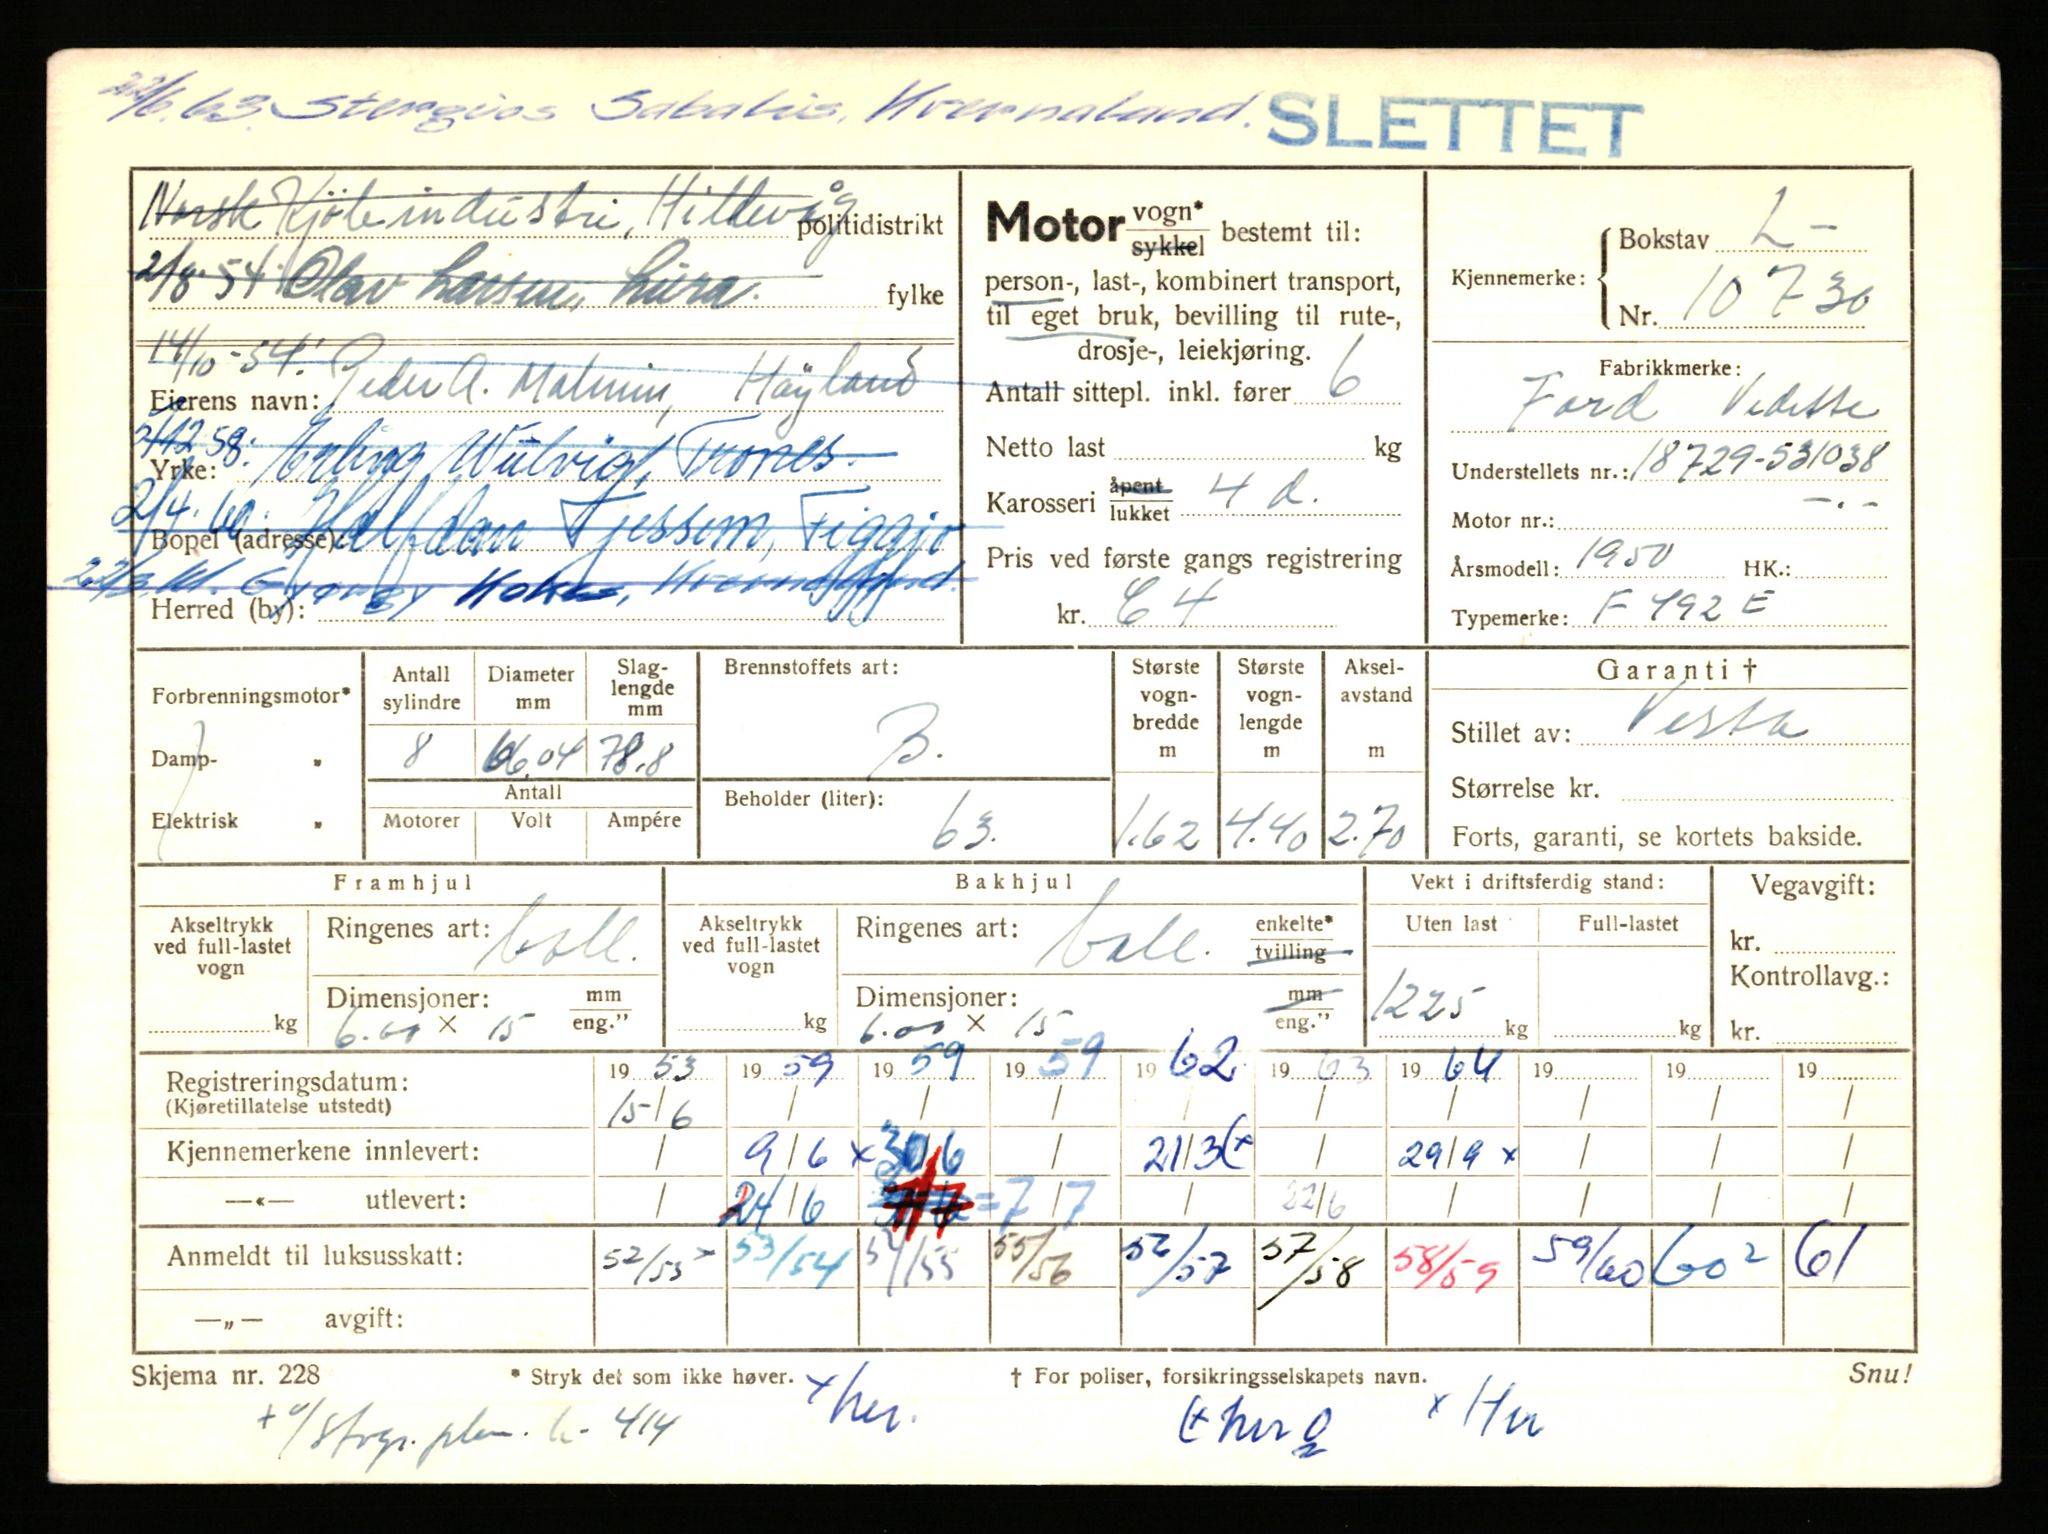 22/6.63. Stergios Sabalis, Kvernaland. SLETTET
Norsk Kjøleindustri, Hillevåg politidistrikt
2/8-54 Olav Larsen, Lura. fylke
14/10-54: Peder A. Malmin, Høyland
Eierens navn:
2/12.58: Erling Wiilvig, Trones.
Yrke:
2/4.60: Halfdan Tjessem, Figgjo
Bopel (adresse):
Kvernaland.
Herred (by):
Motor vogn* sykkel bestemt til:
person-, last-, kombinert transport,
til eget bruk, bevilling til rute-,
drosje-, leiekjøring.
Antall sittepl. inkl. fører 6
Netto last kg
Karosseri åpent lukket 4 d.
Pris ved første gangs registrering
kr. C 4
Kjennemerke: Bokstav L-
Nr. 10730
Fabrikkmerke:
Ford Vedette
Understellets nr.: 18729-531038
Motor nr.: -.-
Årsmodell: 1950 HK.:
Typemerke: F 492 E
Forbrenningsmotor*
Damp- „
Elektrisk „
Antall sylindre Diameter mm Slaglengde mm
8 66.04 78.8
Antall
Motorer Volt Ampére
Brennstoffets art:
B.
Beholder (liter):
63.
Største vognbredde m Største vognlengde m Akselavstand m
1.62 4.40 2.70
Garanti †
Stillet av: Vesta
Størrelse kr.
Forts, garanti, se kortets bakside.
Framhjul
Akseltrykk ved full-lastet vogn kg
Ringenes art: ball.
Dimensjoner: mm eng."
6.00 × 15
Bakhjul
Akseltrykk ved full-lastet vogn kg
Ringenes art: ball. enkelte* tvilling
Dimensjoner: mm eng."
6.00 × 15
Vekt i driftsferdig stand:
Uten last Full-lastet
1225 kg kg
Vegavgift:
kr.
Kontrollavg.:
kr.
Registreringsdatum: 19 53 19 59 19 59 19 59 19 62 19 63 19 64 19 19 19
(Kjøretillatelse utstedt) 15/6 / / / / / / / / /
Kjennemerkene innlevert: / 9/6 x 30/6 / 21/3 (x / 29/9 x / / /
—«— utlevert: / 24/6 = 7/7 / 22/6 / / / /
Anmeldt til luksusskatt: 52/53 53/54 54/55 55/56 56/57 57/58 58/59 59/60 60 2 61
—„— avgift:
Skjema nr. 228 * Stryk det som ikke høver. † For poliser, forsikringsselskapets navn. Snu!
x her. x Her
L- 414